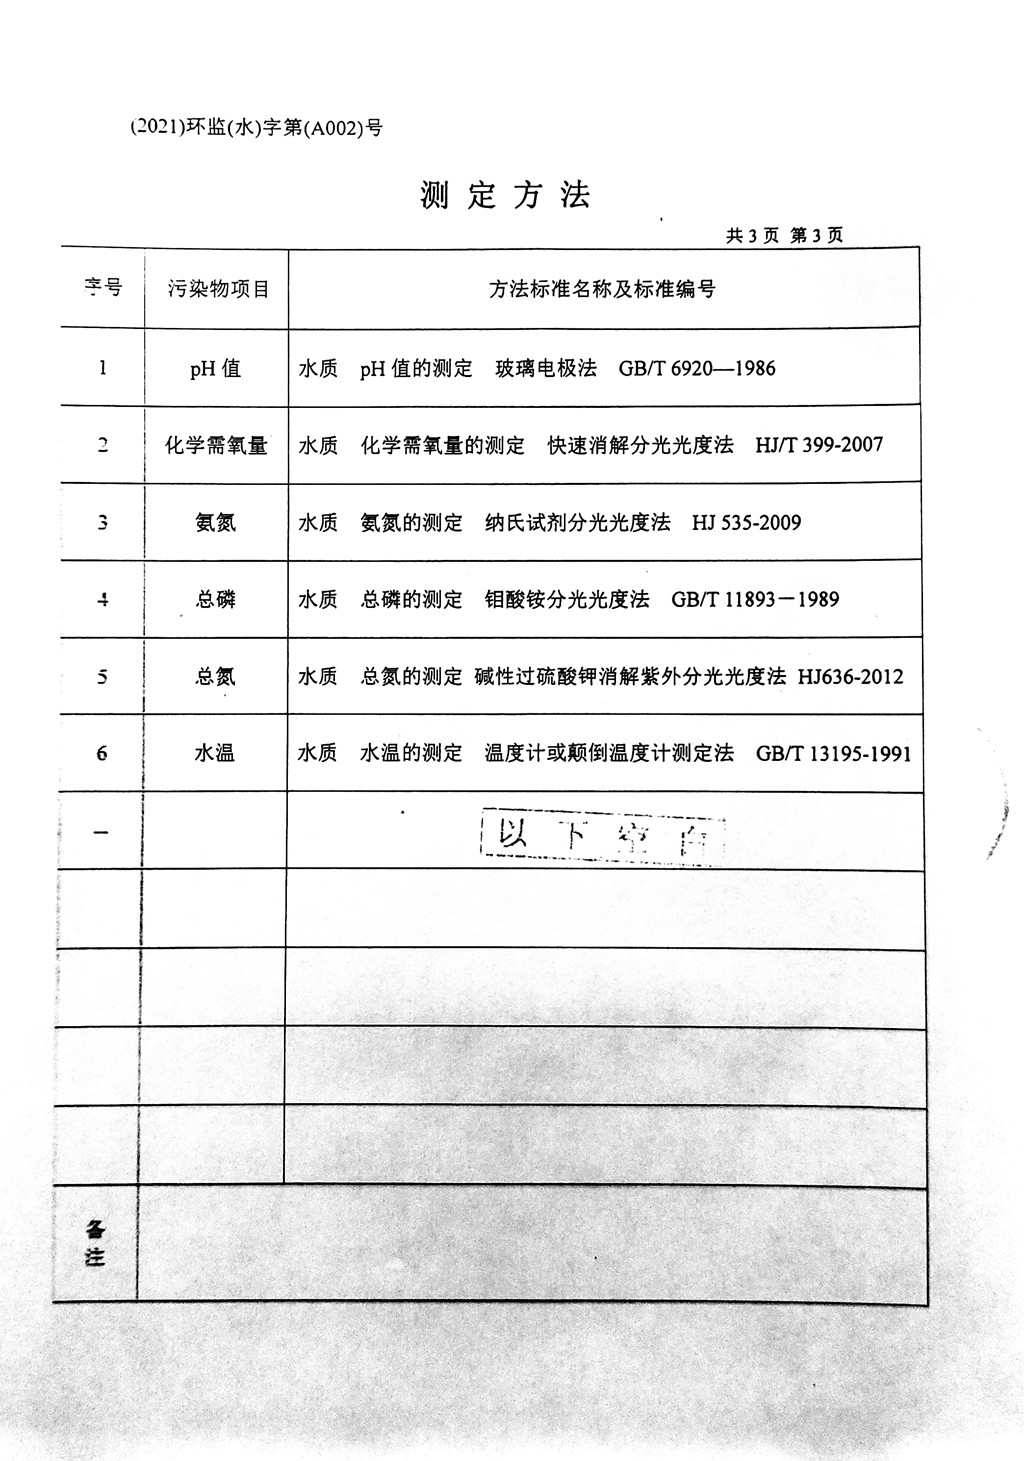 (2021)环监(水)字第(A002)号
测 定 方 法
共 3 页 第 3 页
序号 污染物项目 方法标准名称及标准编号
1 pH 值 水质 pH 值的测定 玻璃电极法 GB/T 6920—1986
2 化学需氧量 水质 化学需氧量的测定 快速消解分光光度法 HJ/T 399-2007
3 氨氮 水质 氨氮的测定 纳氏试剂分光光度法 HJ 535-2009
4 总磷 水质 总磷的测定 钼酸铵分光光度法 GB/T 11893－1989
5 总氮 水质 总氮的测定 碱性过硫酸钾消解紫外分光光度法 HJ636-2012
6 水温 水质 水温的测定 温度计或颠倒温度计测定法 GB/T 13195-1991
—
以 下 空 白
备
注